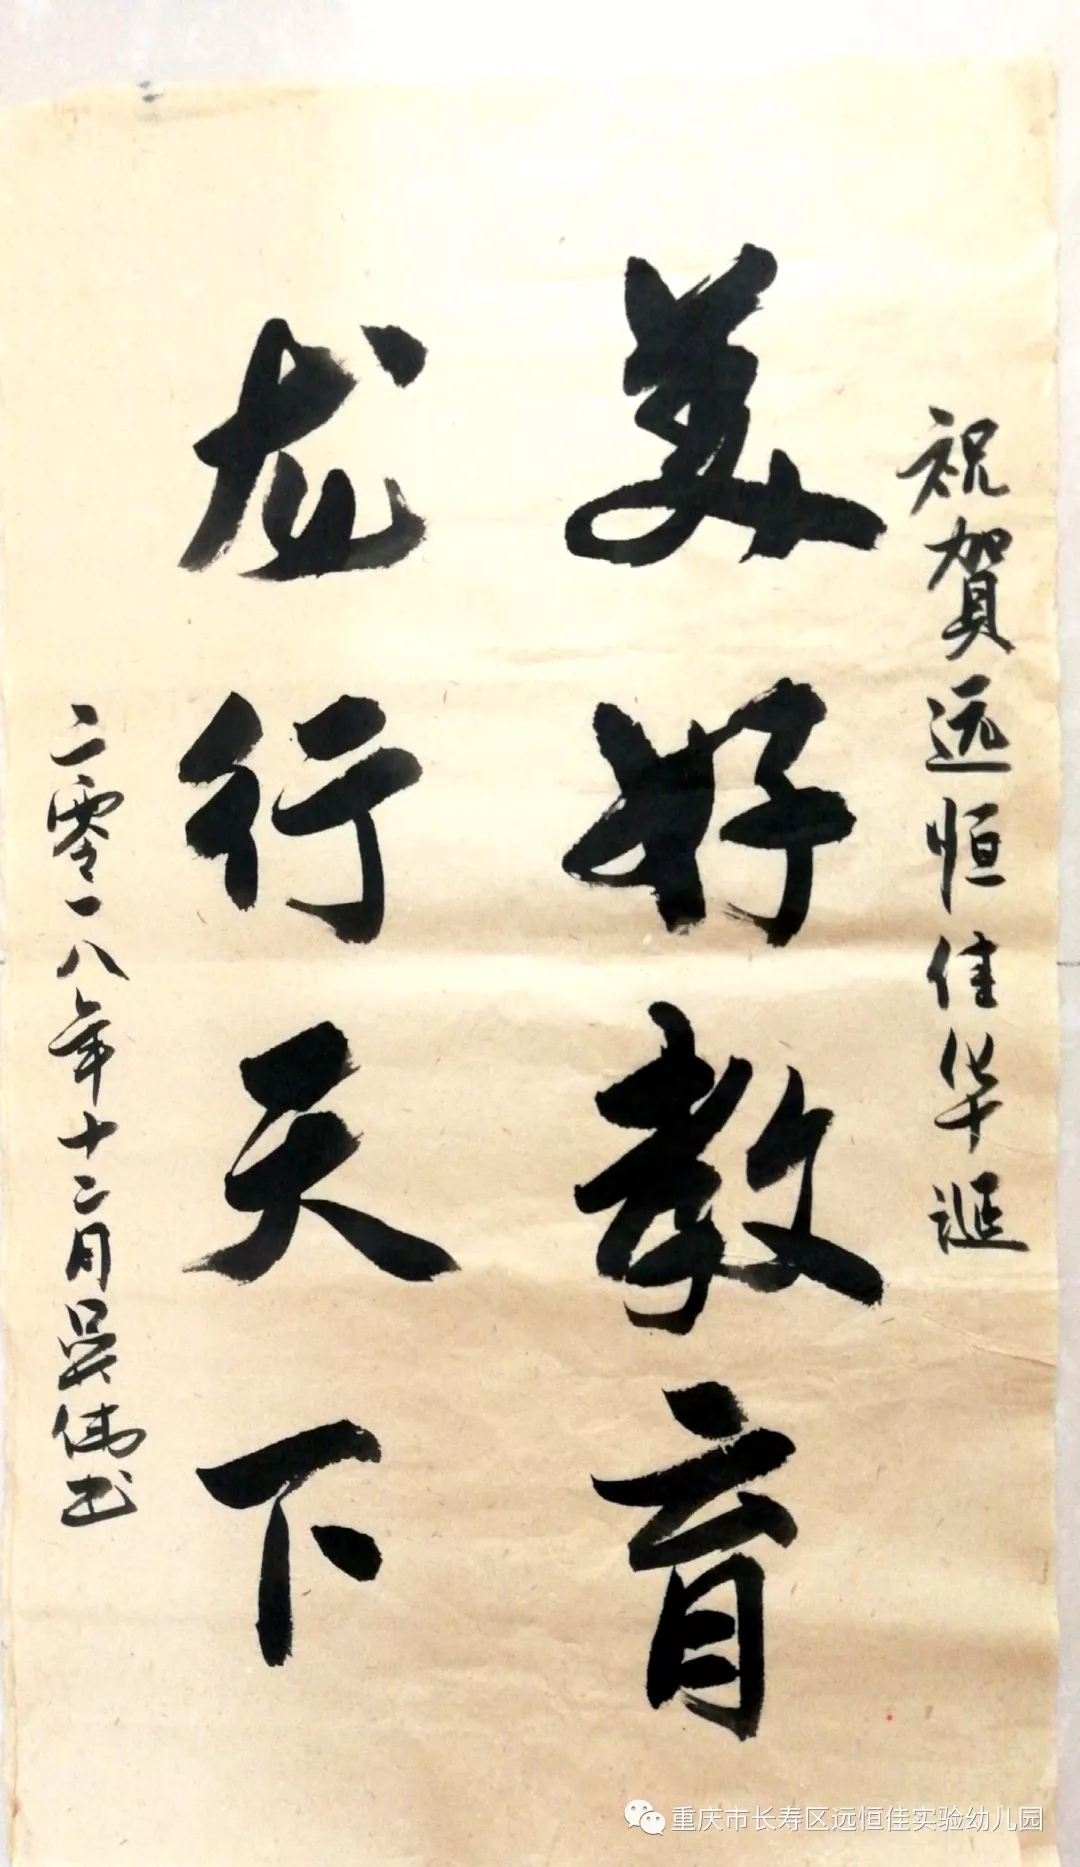 祝贺远恒佳华诞
美好教育
龙行天下
二零一八年十二月吴伟书
重庆市长寿区远恒佳实验幼儿园